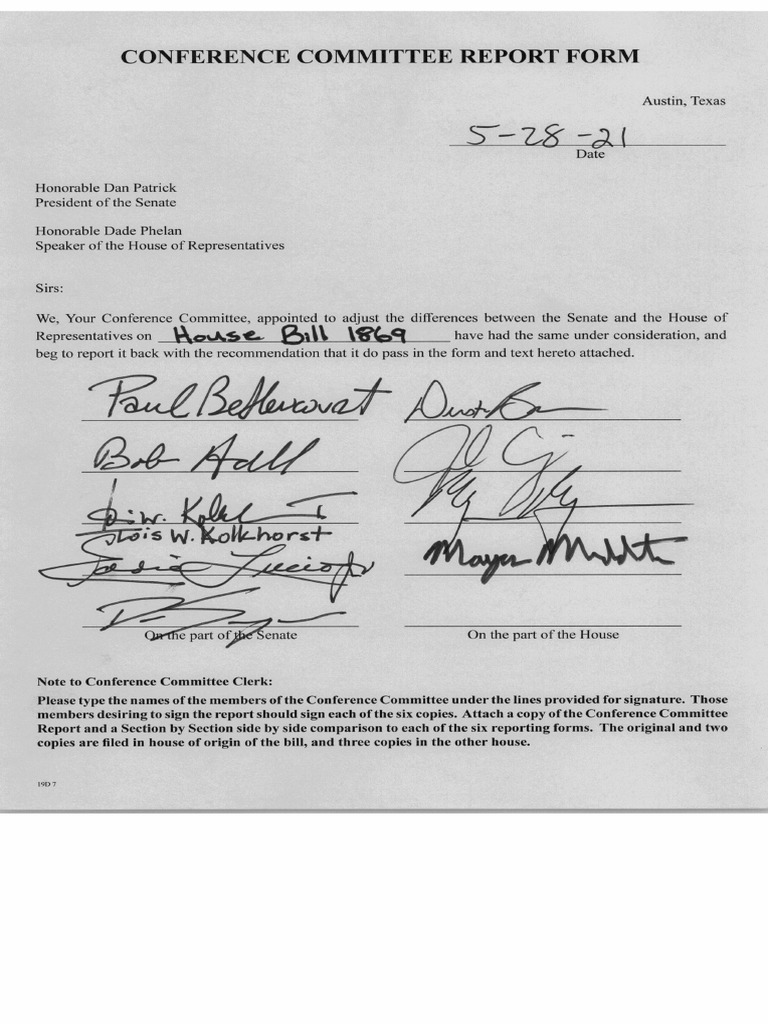 CONFERENCE COMMITTEE REPORT FORM
Austin, Texas
5-28-21
Date
Honorable Dan Patrick
President of the Senate
Honorable Dade Phelan
Speaker of the House of Representatives
Sirs:
We, Your Conference Committee, appointed to adjust the differences between the Senate and the House of
Representatives on House Bill 1869 have had the same under consideration, and
beg to report it back with the recommendation that it do pass in the form and text hereto attached.
Paul Bettencourt
Bob Hall
Lois W. Kolkhorst
Lois W. Kolkhorst
Eddie Lucio Jr
Mayes Middleton
On the part of the Senate
On the part of the House
Note to Conference Committee Clerk:
Please type the names of the members of the Conference Committee under the lines provided for signature. Those
members desiring to sign the report should sign each of the six copies. Attach a copy of the Conference Committee
Report and a Section by Section side by side comparison to each of the six reporting forms. The original and two
copies are filed in house of origin of the bill, and three copies in the other house.
19D 7